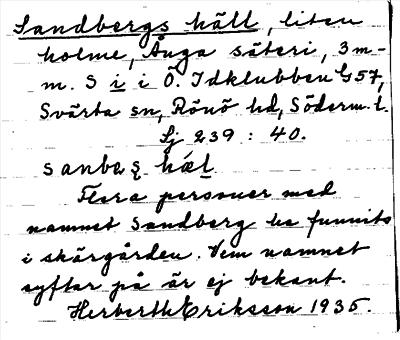 Sandbergs häll, liten
holme, Ånga säteri, 3 m-
m. S i i Ö. Idklubben G 57,
Svärta sn, Rönö hd, Söderm. l.
Sj 239 : 40.
sanbæş hæl
Flera personer med
namnet Sandberg ha funnits
i skärgården. Vem namnet
syftar på är ej bekant.
Herberth Eriksson 1935.